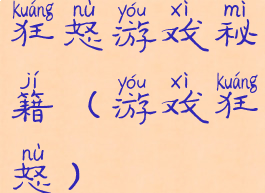 kuáng nù yóu xì mì
狂怒游戏秘
jí yóu xì kuáng
籍（游戏狂
nù
怒）